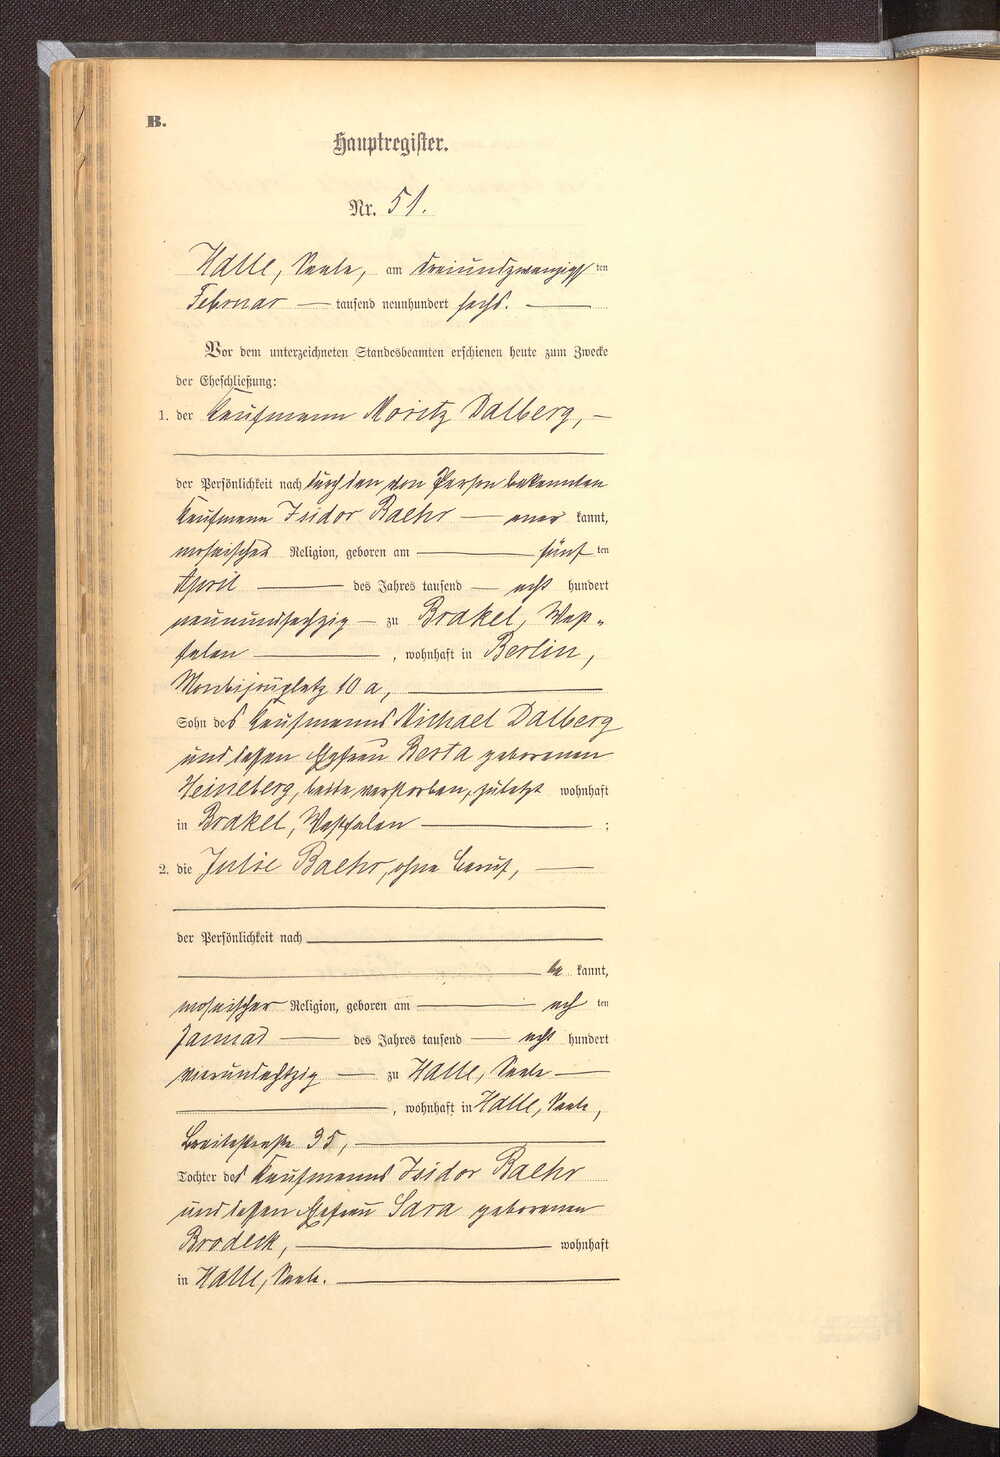 B.
Hauptregister.
Nr. 51.
Halle, Saale, am dreiundzwanzigsten
Februar — tausend neunhundert sechs. —
Vor dem unterzeichneten Standesbeamten erschienen heute zum Zwecke
der Eheschließung:
1. der Kaufmann Moritz Dalberg, —
der Persönlichkeit nach durch den von Person bekannten
Kaufmann Isidor Baehr — aner kannt,
mosaischer Religion, geboren am — fünf ten
April — des Jahres tausend — acht hundert
neunundsechzig — zu Brakel, West-
falen —, wohnhaft in Berlin,
Monbijouplatz 10 a, —
Sohn des Kaufmanns Michael Dalberg
und dessen Ehefrau Berta geborenen
Heineberg, beide verstorben, zuletzt wohnhaft
in Brakel, Westfalen — ;
2. die Julie Baehr, ohne Beruf, —
der Persönlichkeit nach —
— be kannt,
mosaischer Religion, geboren am — ach ten
Januar — des Jahres tausend — acht hundert
vierundachtzig — zu Halle, Saale —
—, wohnhaft in Halle, Saale,
Breitestraße 35, —
Tochter des Kaufmanns Isidor Baehr
und dessen Ehefrau Sara geborenen
Brodeck, — wohnhaft
in Halle, Saale. —